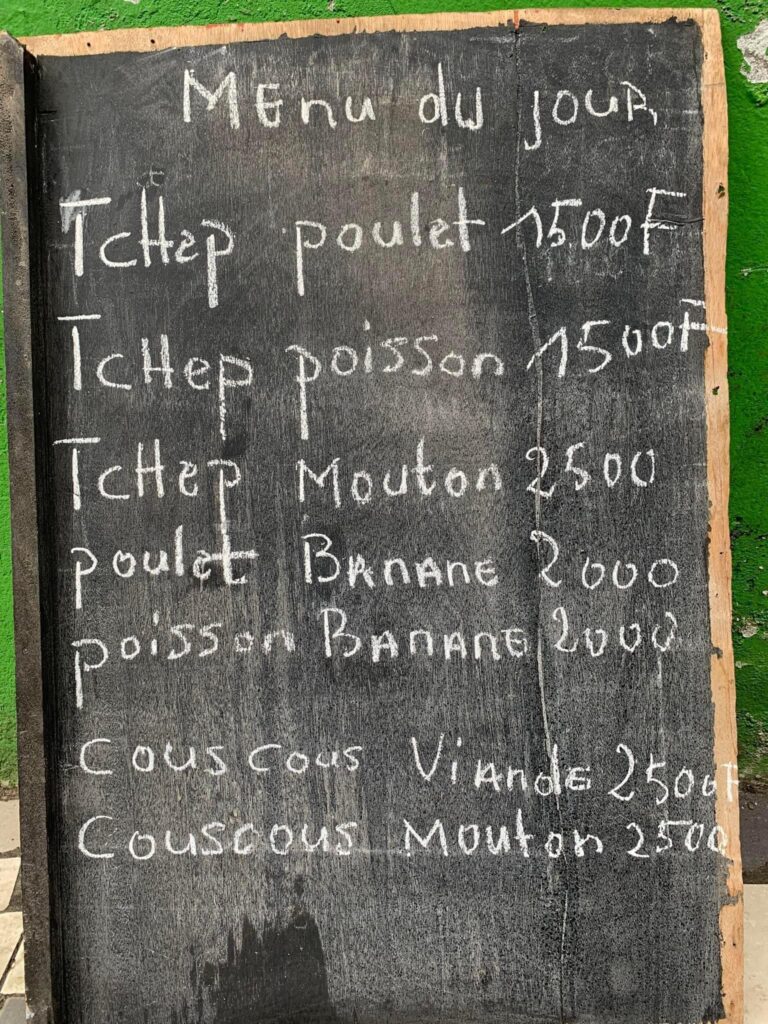 MEnu du jour
TcHep poulet 1500F
TcHep poisson 1500F
TcHep Mouton 2500
poulet BANANE 2000
poisson BANANE 2000
Couscous ViANdE 2500F
Couscous Mouton 2500